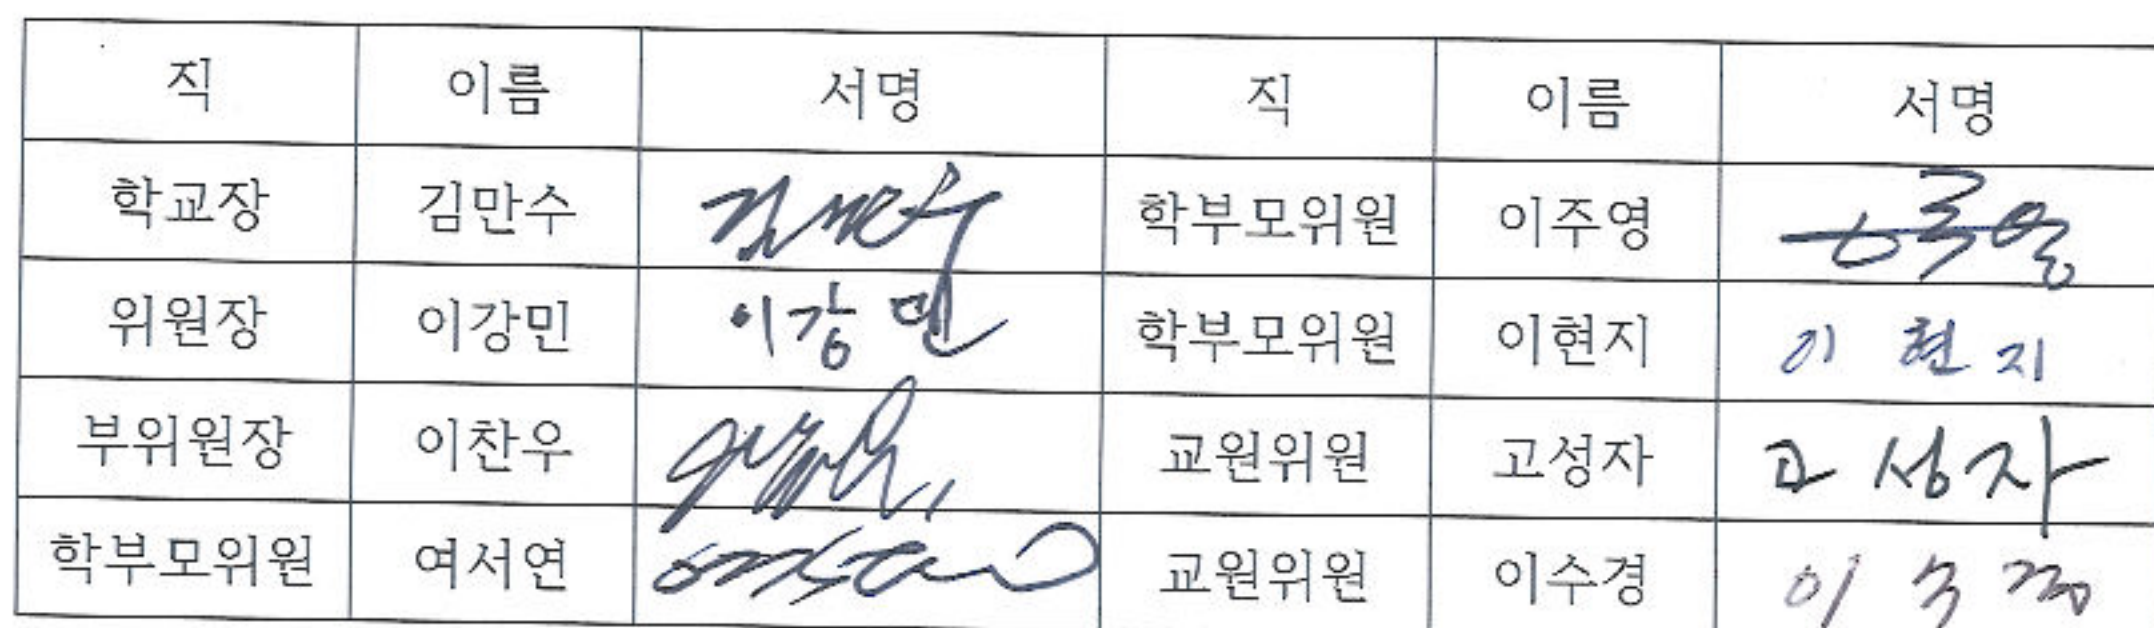 직 이름 서명 직 이름 서명
학교장 김만수 학부모위원 이주영
위원장 이강민 이강민 학부모위원 이현지 이현지
부위원장 이찬우 교원위원 고성자 고성자
학부모위원 여서연 교원위원 이수경 이수경